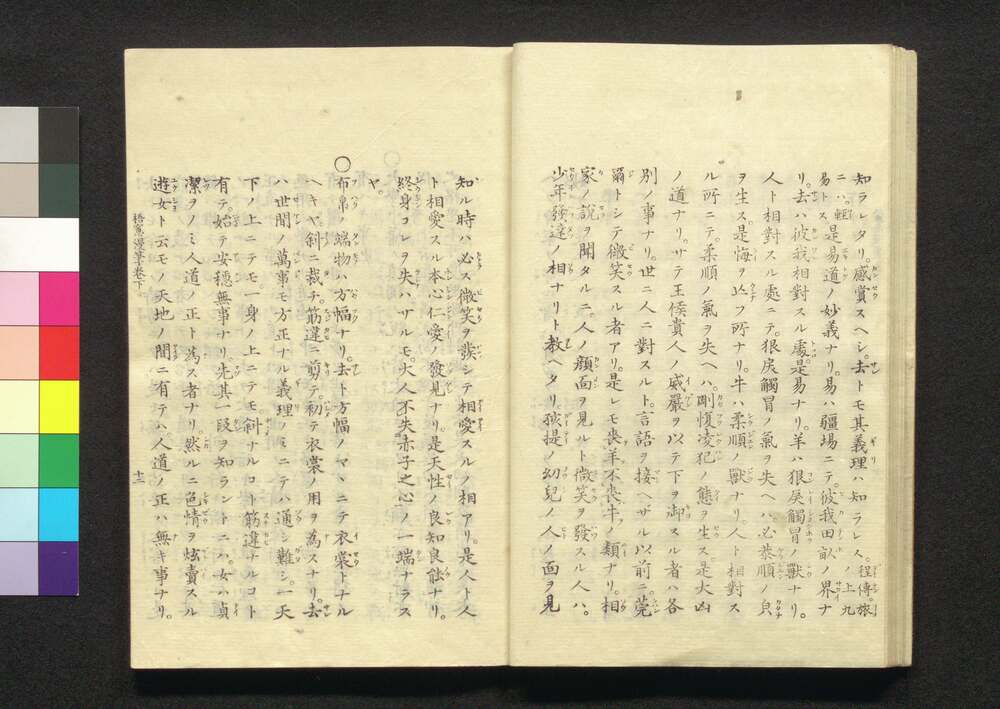 知ラレタリ。感賞スヘシ。去トモ其義理ハ知ラレス。程傳。旅ノ上九
ニハ。輕易トス。是易道ノ妙義ナリ。易ハ疆場ニテ。彼我田畝ノ界ナ
リ。去ハ彼我相對スル處是易ナリ。羊ハ狠戾觸冒ノ獸ナリ。
人ト相對スル處ニテ。狠戾觸冒ノ氣ヲ失ヘハ必恭順ノ良
ヲ生ス。是悔ヲ亾フ所ナリ。牛ハ柔順ノ獸ナリ。人ト相對ス
ル所ニテ。柔順ノ氣ヲ失ヘハ。剛愎凌犯ノ態ヲ生ス是大凶
ノ道ナリ。サテ王侯貴人ノ威嚴ヲ以テ下ヲ御スル者ハ各
別ノ事ナリ。世ニ人ニ對スルト。言語ヲ接ヘザル以前ニ。莞
爾トシテ微笑スル者アリ。是レモ喪羊不喪牛ノ類ナリ。相
家ノ說ヲ聞タルニ。人ノ顏面ヲ見ルト微笑ヲ發スル人ハ。
少年發達ノ相ナリト教ヘタリ孩提ノ幼兒ノ人ノ面ヲ見
知ル時ハ必ス微笑ヲ發シテ相愛スルノ相アリ。是人ト人
ト相愛スル本心仁愛ノ發見ナリ。是天性ノ良知良能ナリ。
終身コレヲ失ハザルモ。大人不失赤子之心ノ一端ナラス
ヤ。
○布帛ノ端物ハ方幅ナリ。去ト方幅ノマヽニテ衣裳トナル
ヘキヤ。斜ニ裁チ。筋違ニ剪テ。初テ衣裳ノ用ヲ為スナリ。去
ハ世間ノ萬事モ方正ナル義理ノミニテハ通シ難シ。一天
下ノ上ニテモ。一身ノ上ニテモ斜ナルコト筋違ナルコト
有テ。始テ安穩無事ナリ。先其一段ヲ知ラントニハ。女ハ貞
潔ヲノミ人道ノ正ト為ス者ナリ。然ルニ色情ヲ炫賣スル
遊女ト云モノ天地ノ間ニ有テハ人道ノ正ハ無キ事ナリ。
漫筆卷下。
十三